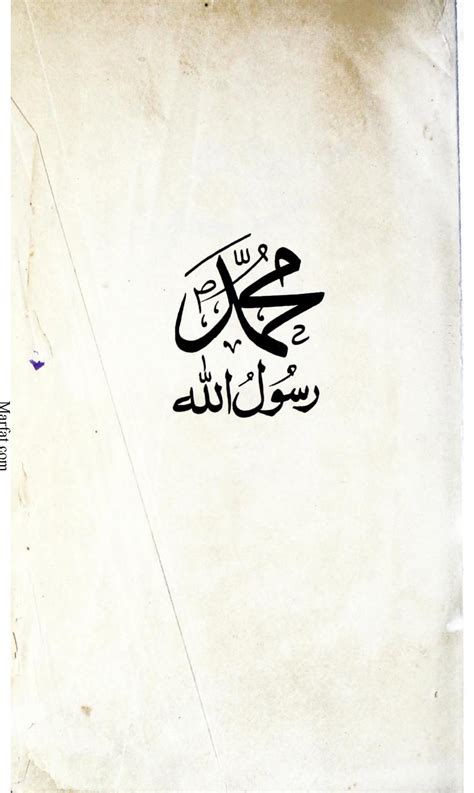 مُحَمَّد
رسُولُ الله
Marfat.com